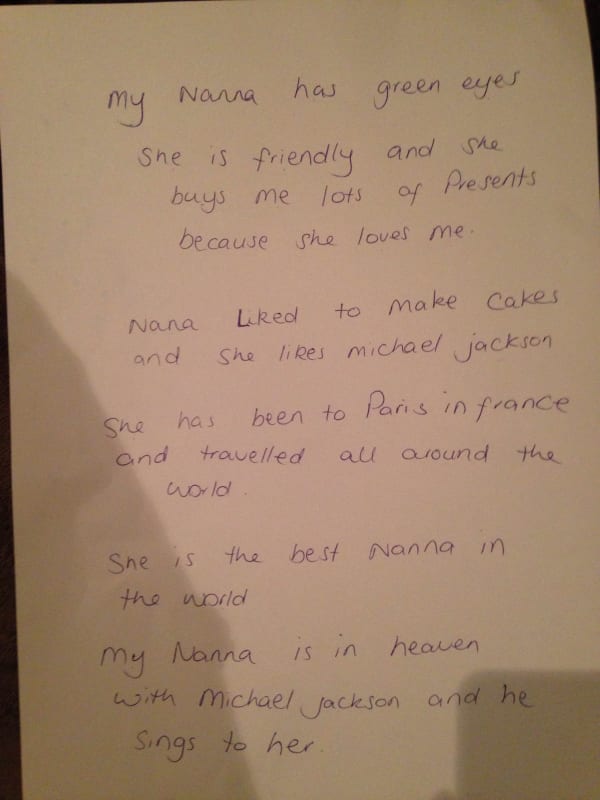 My Nanna has green eyes
She is friendly and she
buys me lots of Presents
because she loves me.
Nana Liked to make cakes
and she likes michael jackson
She has been to Paris in france
and travelled all around the
world.
She is the best Nanna in
the world
My Nanna is in heaven
with Michael jackson and he
sings to her.